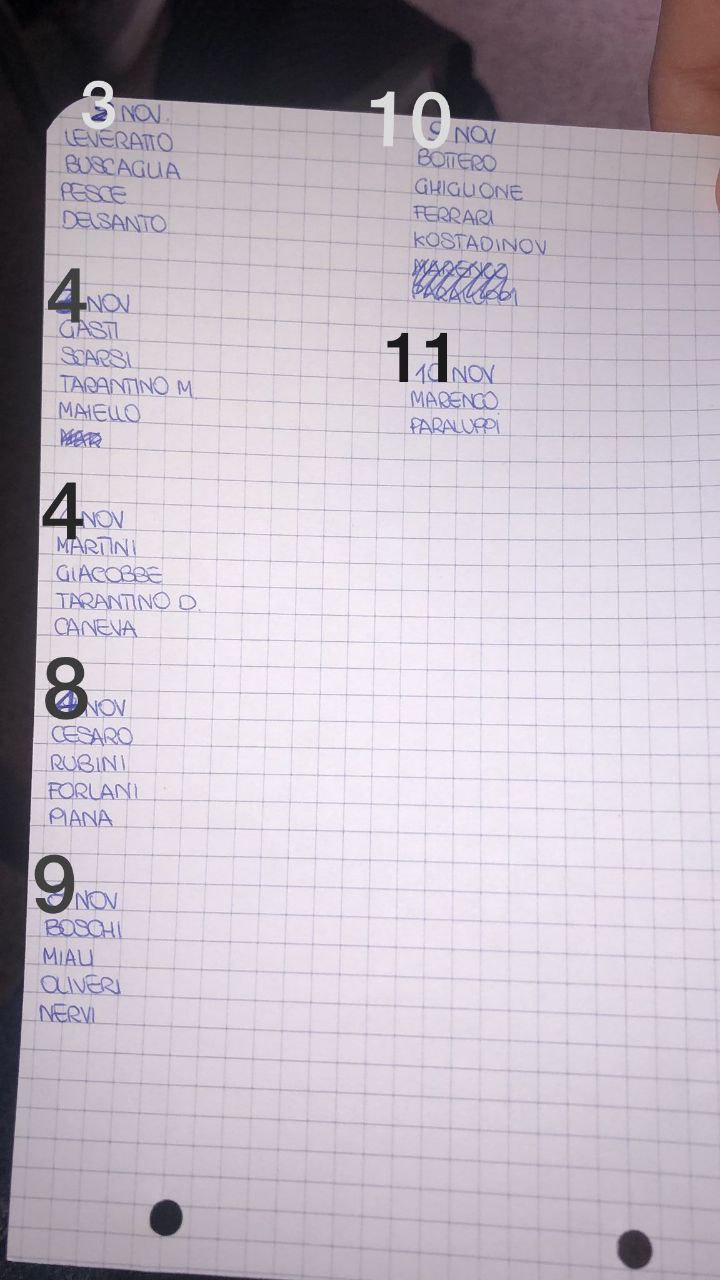 3 NOV.
LEVERATTO
BUSCAGLIA
PESCE
DELSANTO
4 NOV
GASTI
SCARSI
TARANTINO M.
MAIELLO
4 NOV
MARTINI
GIACOBBE
TARANTINO D.
CANEVA
8 NOV
CESARO
RUBINI
FORLANI
PIANA
9 NOV
BOSCHI
MIALI
OLIVERI
NERVI
10 NOV
BOTTERO
GHIGLIONE
FERRARI
KOSTADINOV
MARENCO
PARALUPPI
11 NOV
MARENCO
PARALUPPI